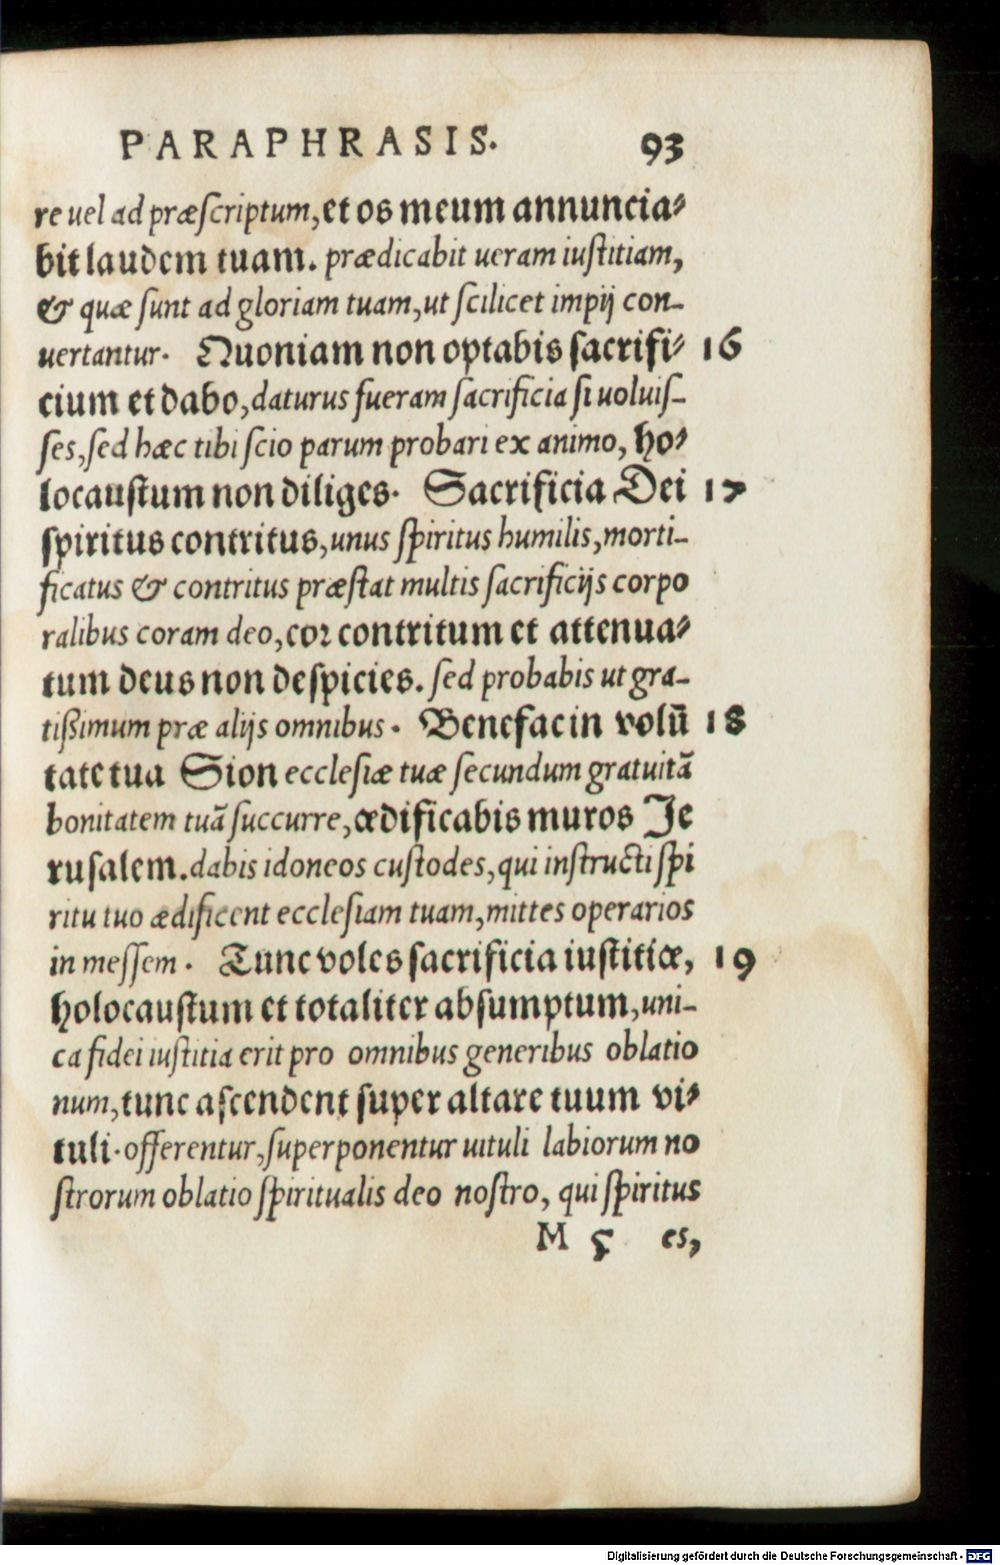 PARAPHRASIS. 93
re uel ad præscriptum, et os meum annuncia⸗
bit laudem tuam. prædicabit ueram iustitiam,
& quæ sunt ad gloriam tuam, ut scilicet impij con-
uertantur. Quoniam non optabis sacrifi⸗ 16
cium et dabo, daturus fueram sacrificia si uoluis-
ses, sed hæc tibi scio parum probari ex animo, ho⸗
locaustum non diliges. Sacrificia Dei 17
spiritus contritus, unus spiritus humilis, morti-
ficatus & contritus præstat multis sacrificijs corpo
ralibus coram deo, cor contritum et attenua⸗
tum deus non despicies. sed probabis ut gra-
tißimum præ alijs omnibus. Benefac in volū 18
tate tua Sion ecclesiæ tuæ secundum gratuitā
bonitatem tuā succurre, ædificabis muros Je
rusalem. dabis idoneos custodes, qui instructi spi
ritu tuo ædificent ecclesiam tuam, mittes operarios
in messem. Tunc voles sacrificia iustitiæ, 19
holocaustum et totaliter absumptum, uni-
ca fidei iustitia erit pro omnibus generibus oblatio
num, tunc ascendent super altare tuum vi⸗
tuli. offerentur, superponentur uituli labiorum no
strorum oblatio spiritualis deo nostro, qui spiritus
M 5 es,
Digitalisierung gefördert durch die Deutsche Forschungsgemeinschaft - DFG